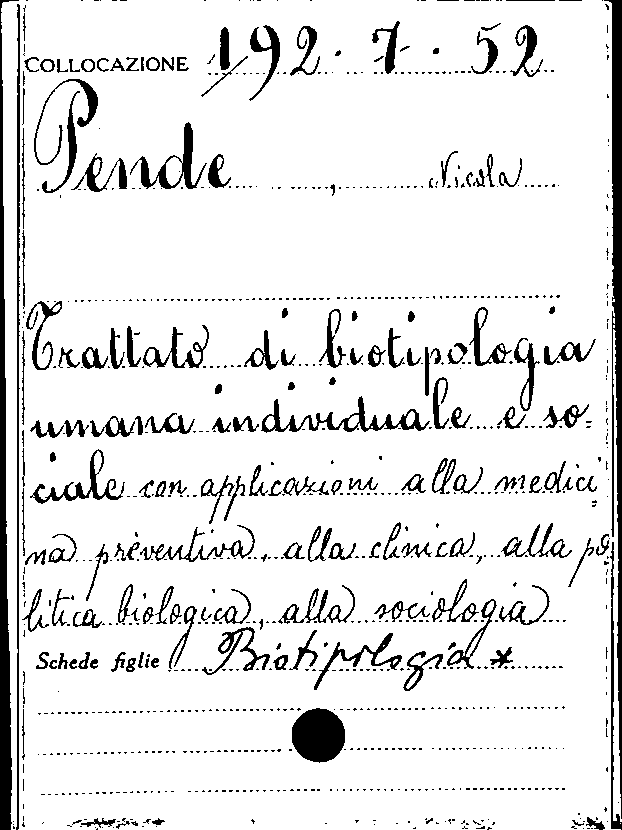 COLLOCAZIONE 192. 7. 52
Pende , Nicola
Trattato di biotipologia
umana individuale e so=
ciale con applicazioni alla medici=
na preventiva, alla clinica, alla po
litica biologica, alla sociologia
Schede figlie Biotipologia *